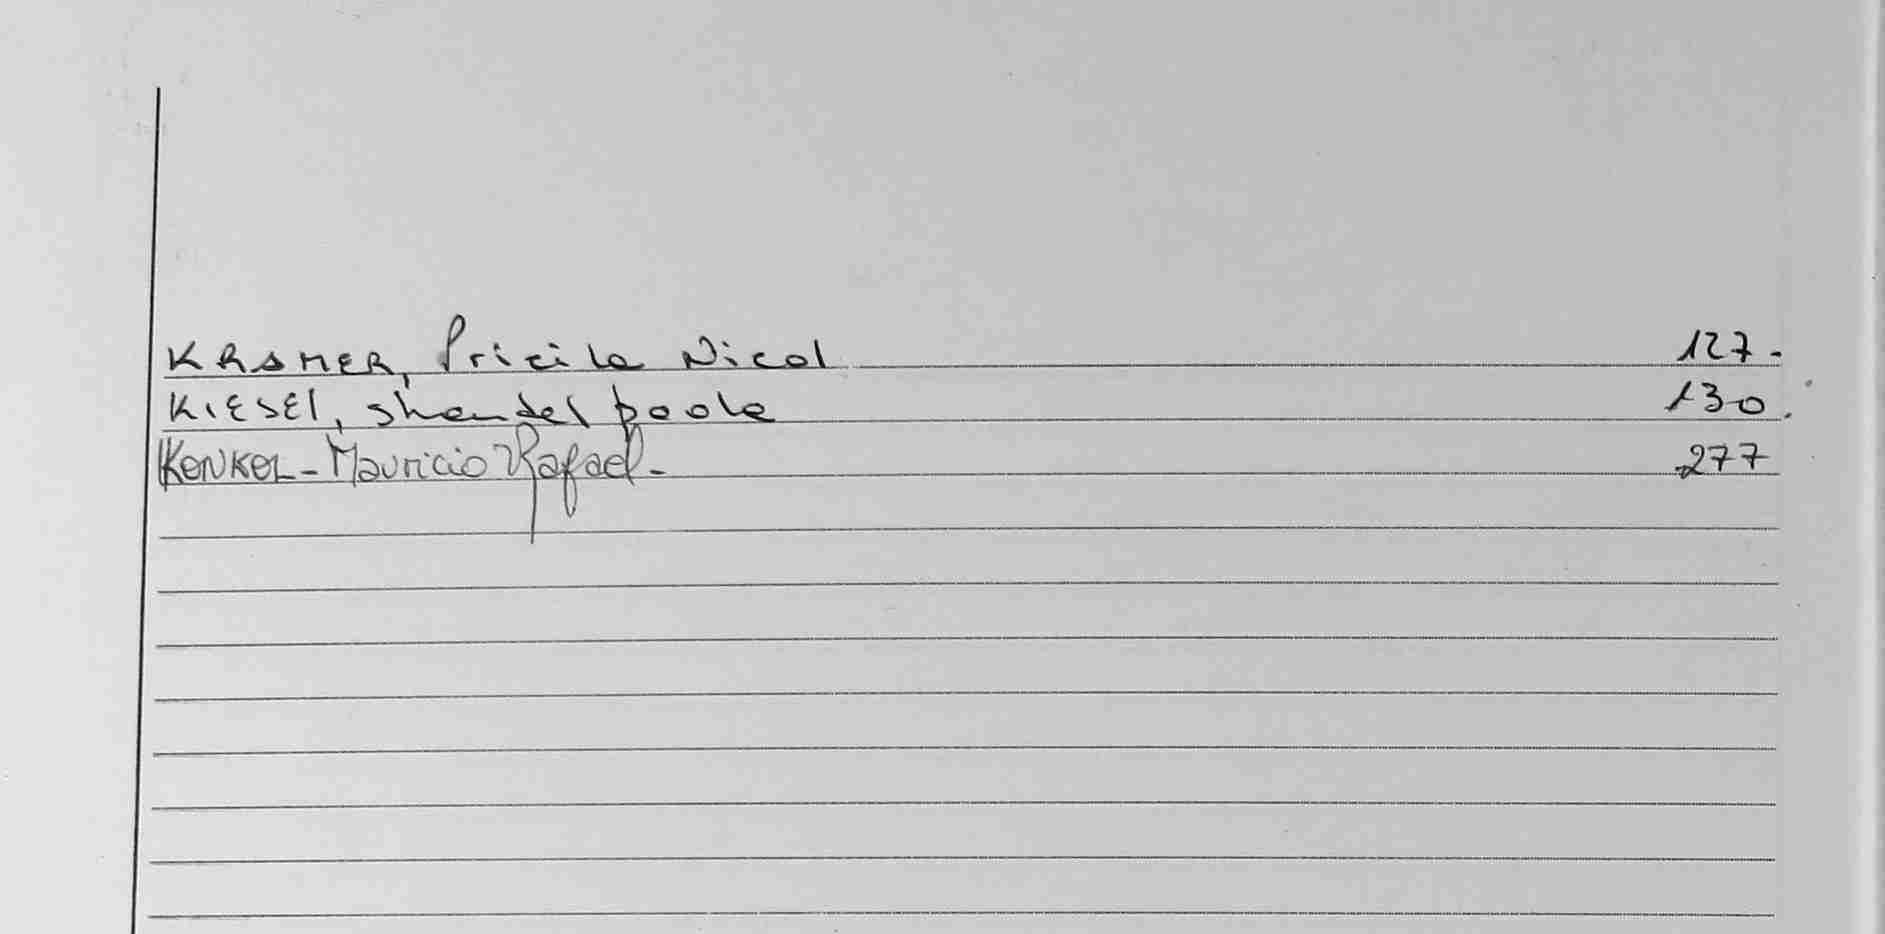 KRAMER, Pricila Nicol 127.
KIESEL, Shandel paola 130.
KENKEL - Mauricio Rafael - 277